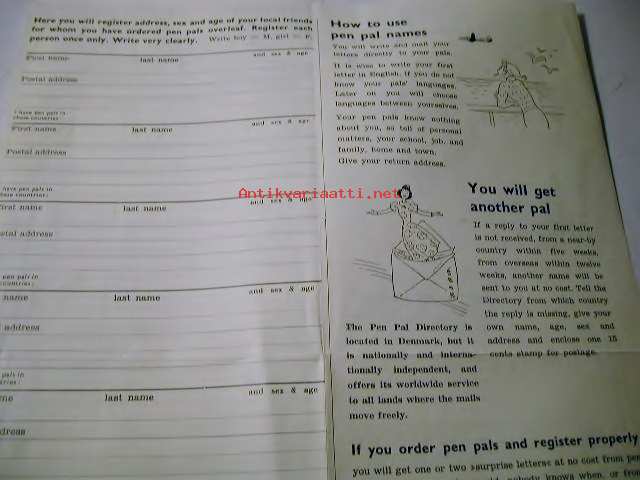 Here you will register address, sex and age of your local friends
for whom you have ordered pen pals overleaf. Register each
person once only. Write very clearly. Write boy = M, girl = F.
First name last name and sex & age
Postal address
I have pen pals in
these countries:
First name last name and sex & age
Postal address
have pen pals in
these countries:
First name last name and sex & age
ostal address
pen pals in
countries:
name last name and sex & age
address
pals in
tries:
me last name and sex & age
dress
How to use
pen pal names
You will write and mail your
letters directly to your pals.
It is wise to write your first
letter in English, if you do not
know your pals' languages.
Later on you will choose
languages between yourselves.
Your pen pals know nothing
about you, so tell of personal
matters, your school, job, and
family, home and town.
Give your return address.
Antikvariaatti.net
You will get
another pal
If a reply to your first letter
is not received, from a near-by
country within five weeks,
from overseas within twelve
weeks, another name will be
sent to you at no cost. Tell the
Directory from which country
the reply is missing, give your
own name, age, sex and
address and enclose one 15
cents stamp for postage.
The Pen Pal Directory is
located in Denmark, but it
is nationally and interna-
tionally independent, and
offers its worldwide service
to all lands where the mails
move freely.
If you order pen pals and register properly
you will get one or two »surprise letters« at no cost from pen
nobody knows when, or from